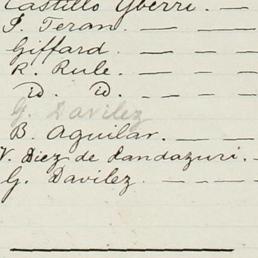 Castillo Yberri. — —
P. Teran. — — —
Giffard. — — —
R. Rule. — — —
D. D. — — —
G. Davilez
B. Aguilar. — — —
V. Diez de Landazuri. —
G. Davilez. — — —